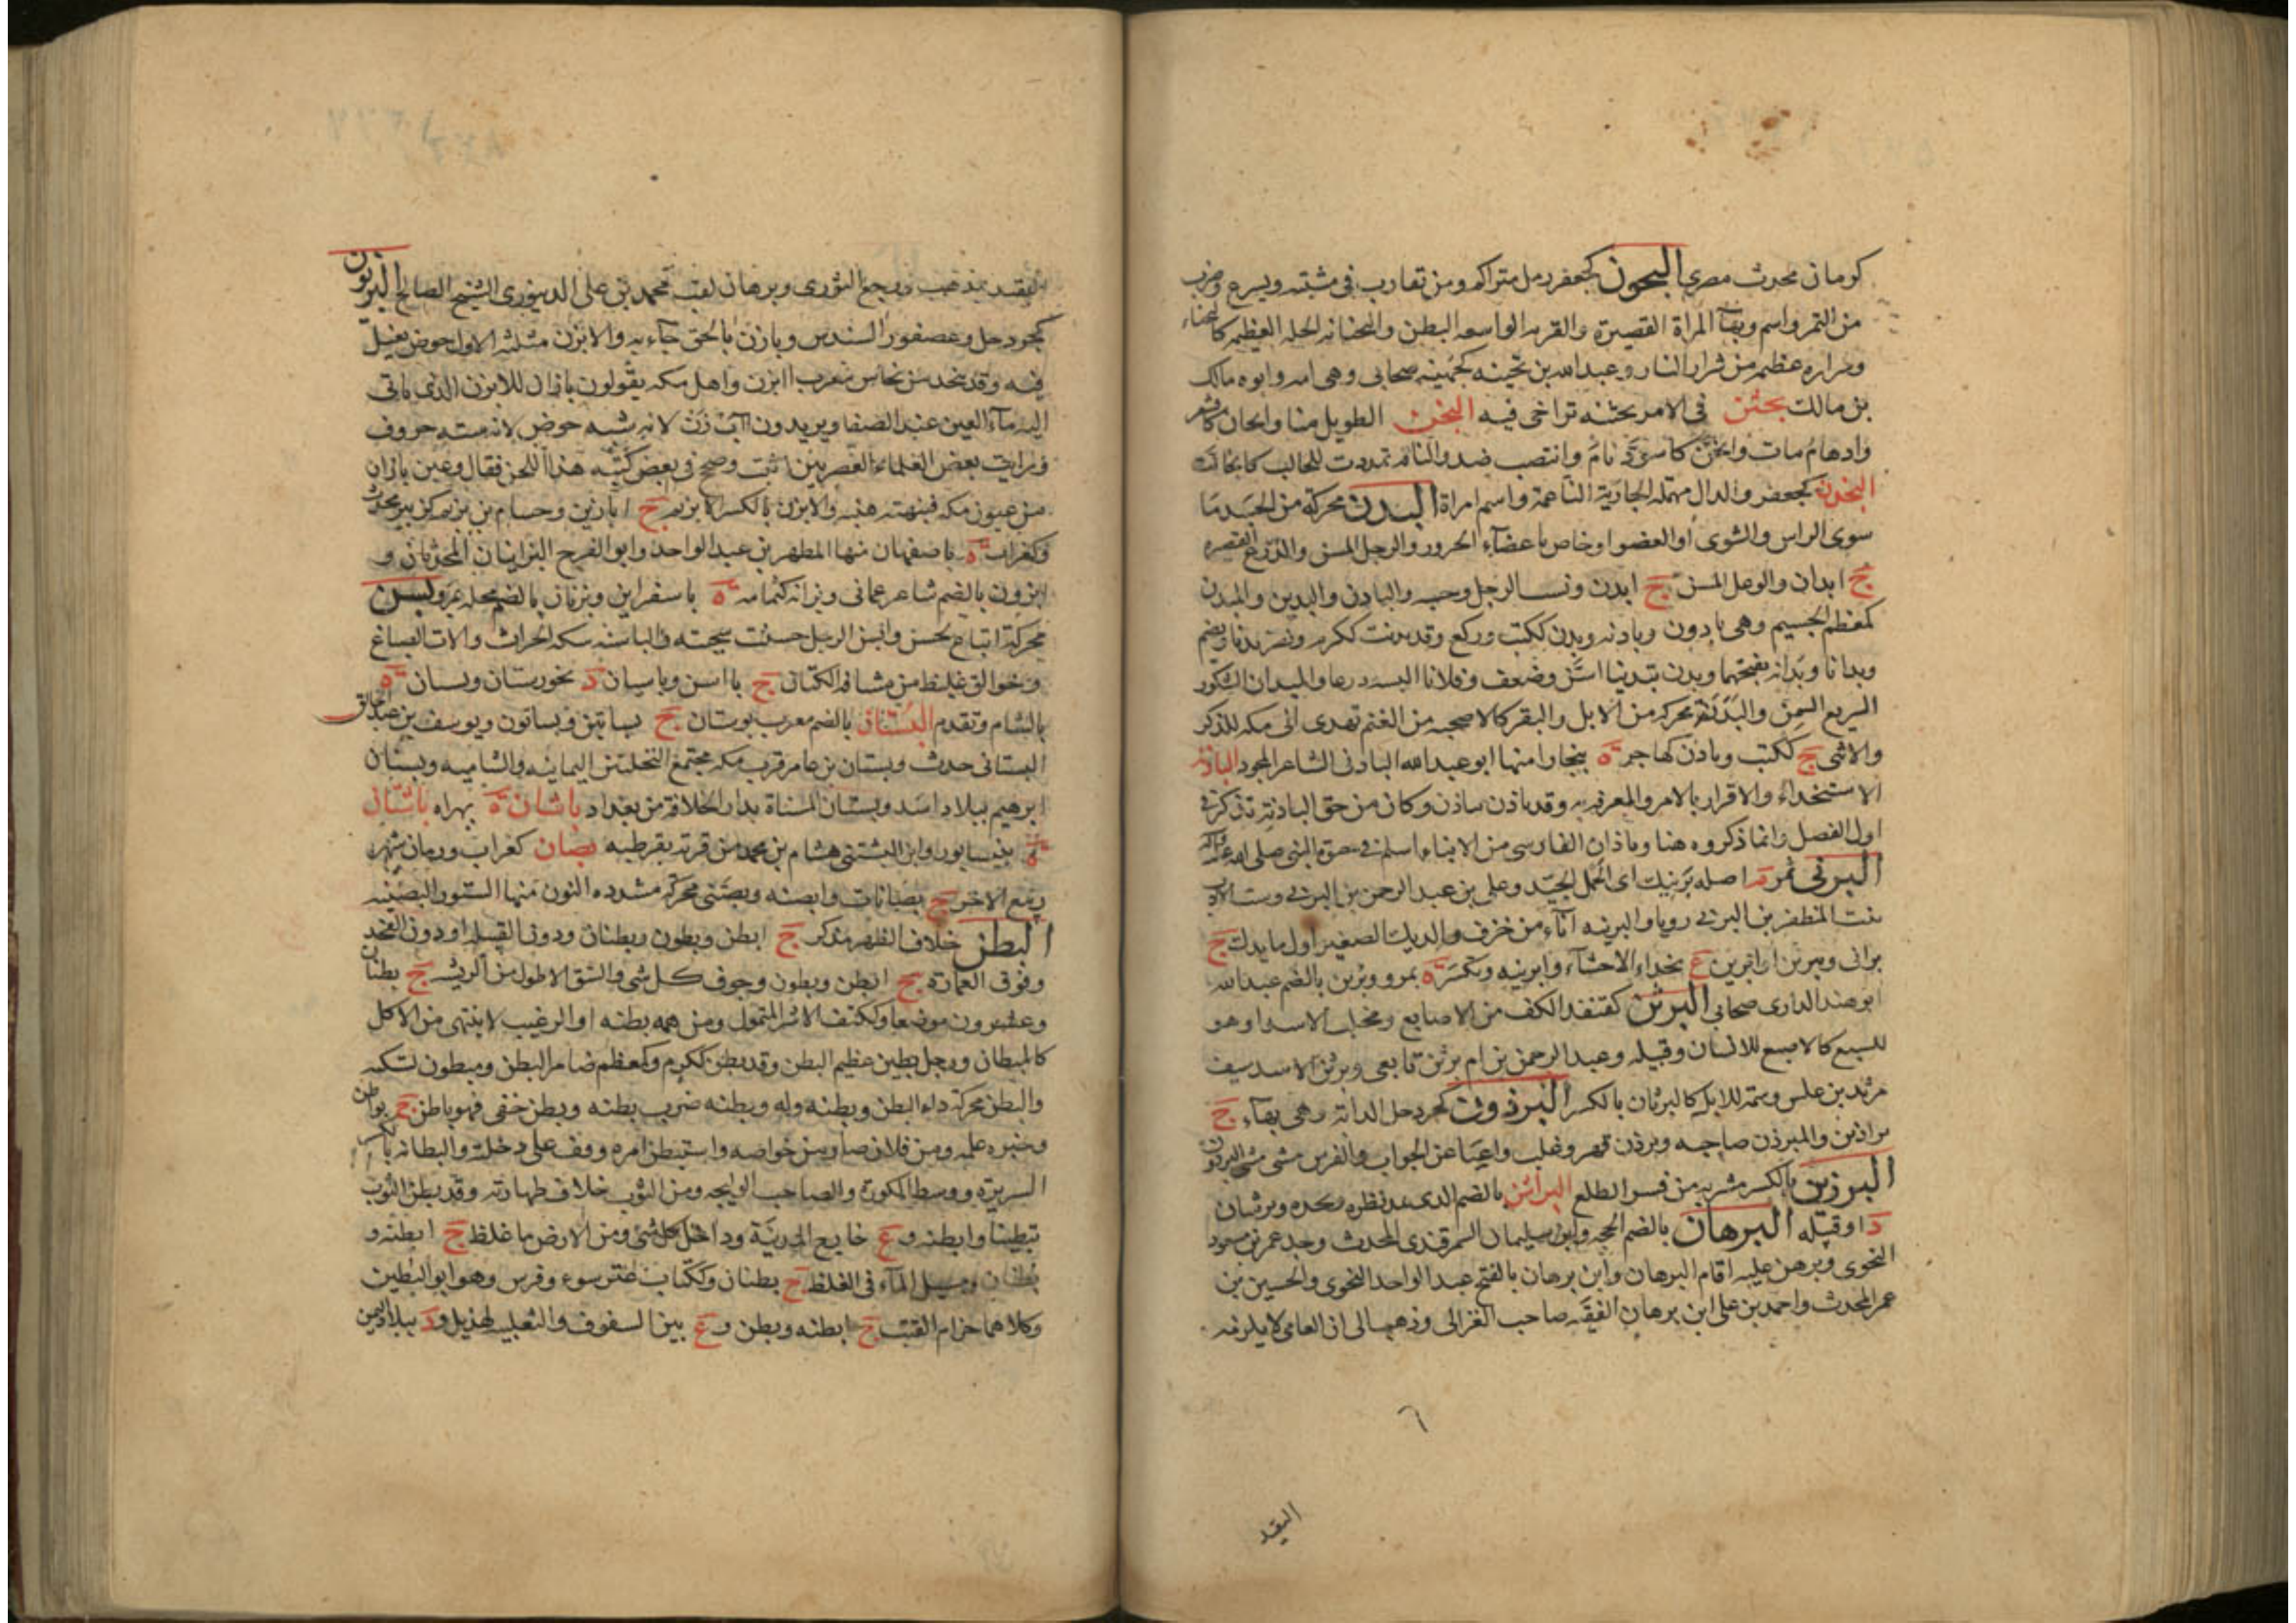 كومان محدث مصري البحون كجعفر رمل متراكم ومن تقارب في مشيته ويسرع وضرب
من التمر واسم وبهاء المراة القصيرة والقربه الواسعه البطن والبحنانه الجله العظيمه كالبحناء
وشراره عظيمه من شرار النار وعبد الله بن بحينه كجهينه صحابي وهي امه وابوه مالك
بن مالك بحثن في الامر بحثنه تراخى فيه البخن الطويل منا وابخان كاقشعر
وادهام مات وابخن كاسود نام وانتصب ضد والناقه تمددت للحالب كابخانت
البخدن كجعفر والدال مهمله الجارية الناعمة واسم امراة البدن محركة من الجسد ما
سوى الراس والشوى او العضو او خاص باعضاء الجزور والرجل المسن والدرع القصيره
ج ابدان والوعل المسن ج ابدن ونسب الرجل وحسبه والبادن والبدين والمبدن
كمعظم الجسيم وهي بادون وبادنه وبدن ككتب وركع وقد بدنت ككرم ونصر بدنا ويضم
وبدانا وبدانه بفتحهما وبدن تبدينا اسن وضعف وفلانا البسه درعا والمبدان الشكور
السريع السمن والبدنة محركه من الابل والبقر كالاضحيه من الغنم تهدى الى مكه للذكر
والانثى ج ككتب وبادن كهاجر ة ببخارا منها ابو عبد الله البادني الشاعر المجود الباذنه
الاستخذاء والاقرار بالامر والمعرفه به وقد باذن يباذن وكان من حق الباذنة تذكر في
اول الفصل وانما ذكروه هنا وباذان الفارسي من الابناء اسلم في حيوة النبي صلى الله عليه
البرني تمر م اصله برنيك اى الحمل الجيد وعلي بن عبد الرحمن بن البرني وست الادب
بنت المظفر بن البرني رويا والبرنيه اناء من خزف والديك الصغير اول ما يدرك ج
براني ويبرين او ابرين ع بحذاء الاحساء وابرينه وتكسر ة بمرو وبرين بالضم عبد الله
ابو هند الداري صحابي البرثن كقنفذ الكف مع الاصابع ومخلب الاسد او هو
للسبع كالاصبع للانسان وقبيله وعبد الرحمن بن ام برثن تابعي وبرثن الاسد سيف
مرثد بن علس وسمة للابل كالبرثان بالكسر البرذون كجردحل الدابة وهي بهاء ج
براذين والمبرذن صاحبه وبرذن قهر وغلب واعيا عن الجواب والفرس مشى مشي البرذون
البرزين بالكسر مشربه من قشر الطلع البراشن بالضم الذي يمد نظره ويحده وبرشان
د او قبيله البرهان بالضم الحجه وابن سليمان السمرقندي المحدث وجد عمر بن مسعود
النحوي وبرهن عليه اقام البرهان وابن برهان بالفتح عبد الواحد النحوي والحسين بن
عمر المحدث واحمد بن علي ابن برهان الفقيه صاحب الغزالي وذهب الى ان العامي لا يلزمه
٦
التقيد
التقيد بمذهب ورجحه النووي وبرهان لقب محمد بن علي الدينوري الشيخ الصالح البزيون
كجردحل وعصفور السندس وبازن بالحق جاء به والابزن مثلثه الاول حوض يغتسل
فيه وقد يتخذ من نحاس معرب ابزن واهل مكه يقولون بازان للابزن الذي ياتي
اليه ماء العين عند الصفا ويريدون آب زن لانه شبه حوض لانه مسته حروف
ورايت بعض العلماء العصريين اثبت وصحح في بعض كتبه هذا اللحن فقال وعين بازان
من عيون مكه فنبهته فتنبه والابزن بالكسر كالابزيم ج ابازين وحسام بن بزن كزبير محدث
وكغراب ة باصفهان منها المطهر بن عبد الواحد وابو الفرج البزانيان المحدثان و
ابزون بالضم شاعر عماني وبزانه كثمامه ة باسفراين وبزنان بالضم محله بمرو بسن
محركة اتباع لحسن وابسن الرجل حسنت سحنته والباسنه سكه الحراث والات الصناع
وجوالق غليظ من مشاقة الكتان ج باسن وباسيان د بخوزستان وبسان ة
بالشام وتقدم البستان بالضم معرب بوستان ج بساتين وبساتون ويوسف بن عبد الخالق
البستاني حدث وبستان بن عامر قرب مكه مجتمع النخلتين اليمانيه والشاميه وبستان
ابرهيم ببلاد اسد وبستان المسناة بدار الخلافة من بغداد باشان ة بهراه باشنان
ة بنيسابور وابن البشتني هشام بن محمد من قرية بقرطبه بصان كغراب ورمان شهر
ربيع الاخر ج بصانات وابصنه وبصنى محركة مشدده النون منها الستور البصنيه
البطن خلاف الظهر مذكر ج ابطن وبطون وبطنان ودون القبيله او دون الفخذ
وفوق العماره ج ابطن وبطون وجوف كل شي والشق الاطول من الريش ج بطنان
وعشرون موضعا وككتف الاشر المتمول ومن همه بطنه او الرغيب لا ينتهي من الاكل
كالمبطان ورجل بطين عظيم البطن وقد بطن ككرم وكمعظم ضامر البطن ومبطون يشتكيه
والبطن محركة داء البطن وبطنه وله وبطنه ضرب بطنه وبطن خفي فهو باطن ج بواطن
وخبره علمه ومن فلان صار من خواصه واستبطن امره وقف على دخلته والبطانه بالكسر
السريرة ووسط الكورة والصاحب الوليجه ومن الثوب خلاف ظهارته وقد بطن الثوب
تبطينا وابطنه وع خارج المدينة وداخل كل شئ ومن الارض ما غلظ ج ابطنه و
بطنان ومسيل الماء في الغلظ ج بطنان وككتاب حزام القتب وفرس وهو ابو البطين
وكلاهما حزام القتب ج ابطنه وبطن و ع بين الشقوق والثعلبيه لهذيل ود ببلاد اليمن